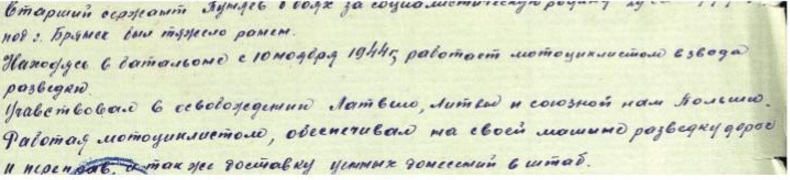 Старший сержант Пунясь в боях за социалистическую родину
под г. Брянск был тяжело ранен.
Находясь в батальоне с 10 ноября 1944г, работает мотоциклистом взвода
разведки.
Учавствовал в освобождении Латвии, Литвы и союзной нам Польши.
Работая мотоциклистом, обеспечивал на своей машине разведку дорог
и переправ, а также доставку ценных донесений в штаб.